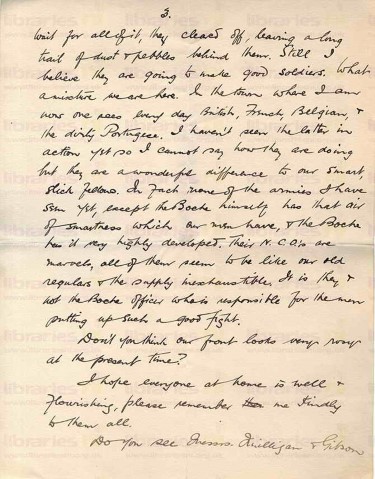 3.
wait for all of it, they cleared off, leaving a long
trail of dust & pebbles behind them. Still I
believe they are going to make good soldiers. What
a mixture we are here. In the town where I am
now one sees every day British, French, Belgian, &
the dirty Portugese. I haven't seen the latter in
action yet so I cannot say how they are doing
but they are a wonderful difference to our smart,
slick fellows. In fact none of the armies I have
seen yet, except the Boche himself has that air
of smartness which our men have, & the Boche
has it very highly developed. Their N.C.O's are
marvels, all of them seem to be like our old
regulars & the supply inexhaustible. It is they &
not the Boche officer who is responsible for the men
putting up such a good fight.
Don't you think our front looks very rosy
at the present time?
I hope everyone at home is well &
flourishing, please remember me kindly
to them all.
Do you see Messrs. Milligan & Gibson
libraries